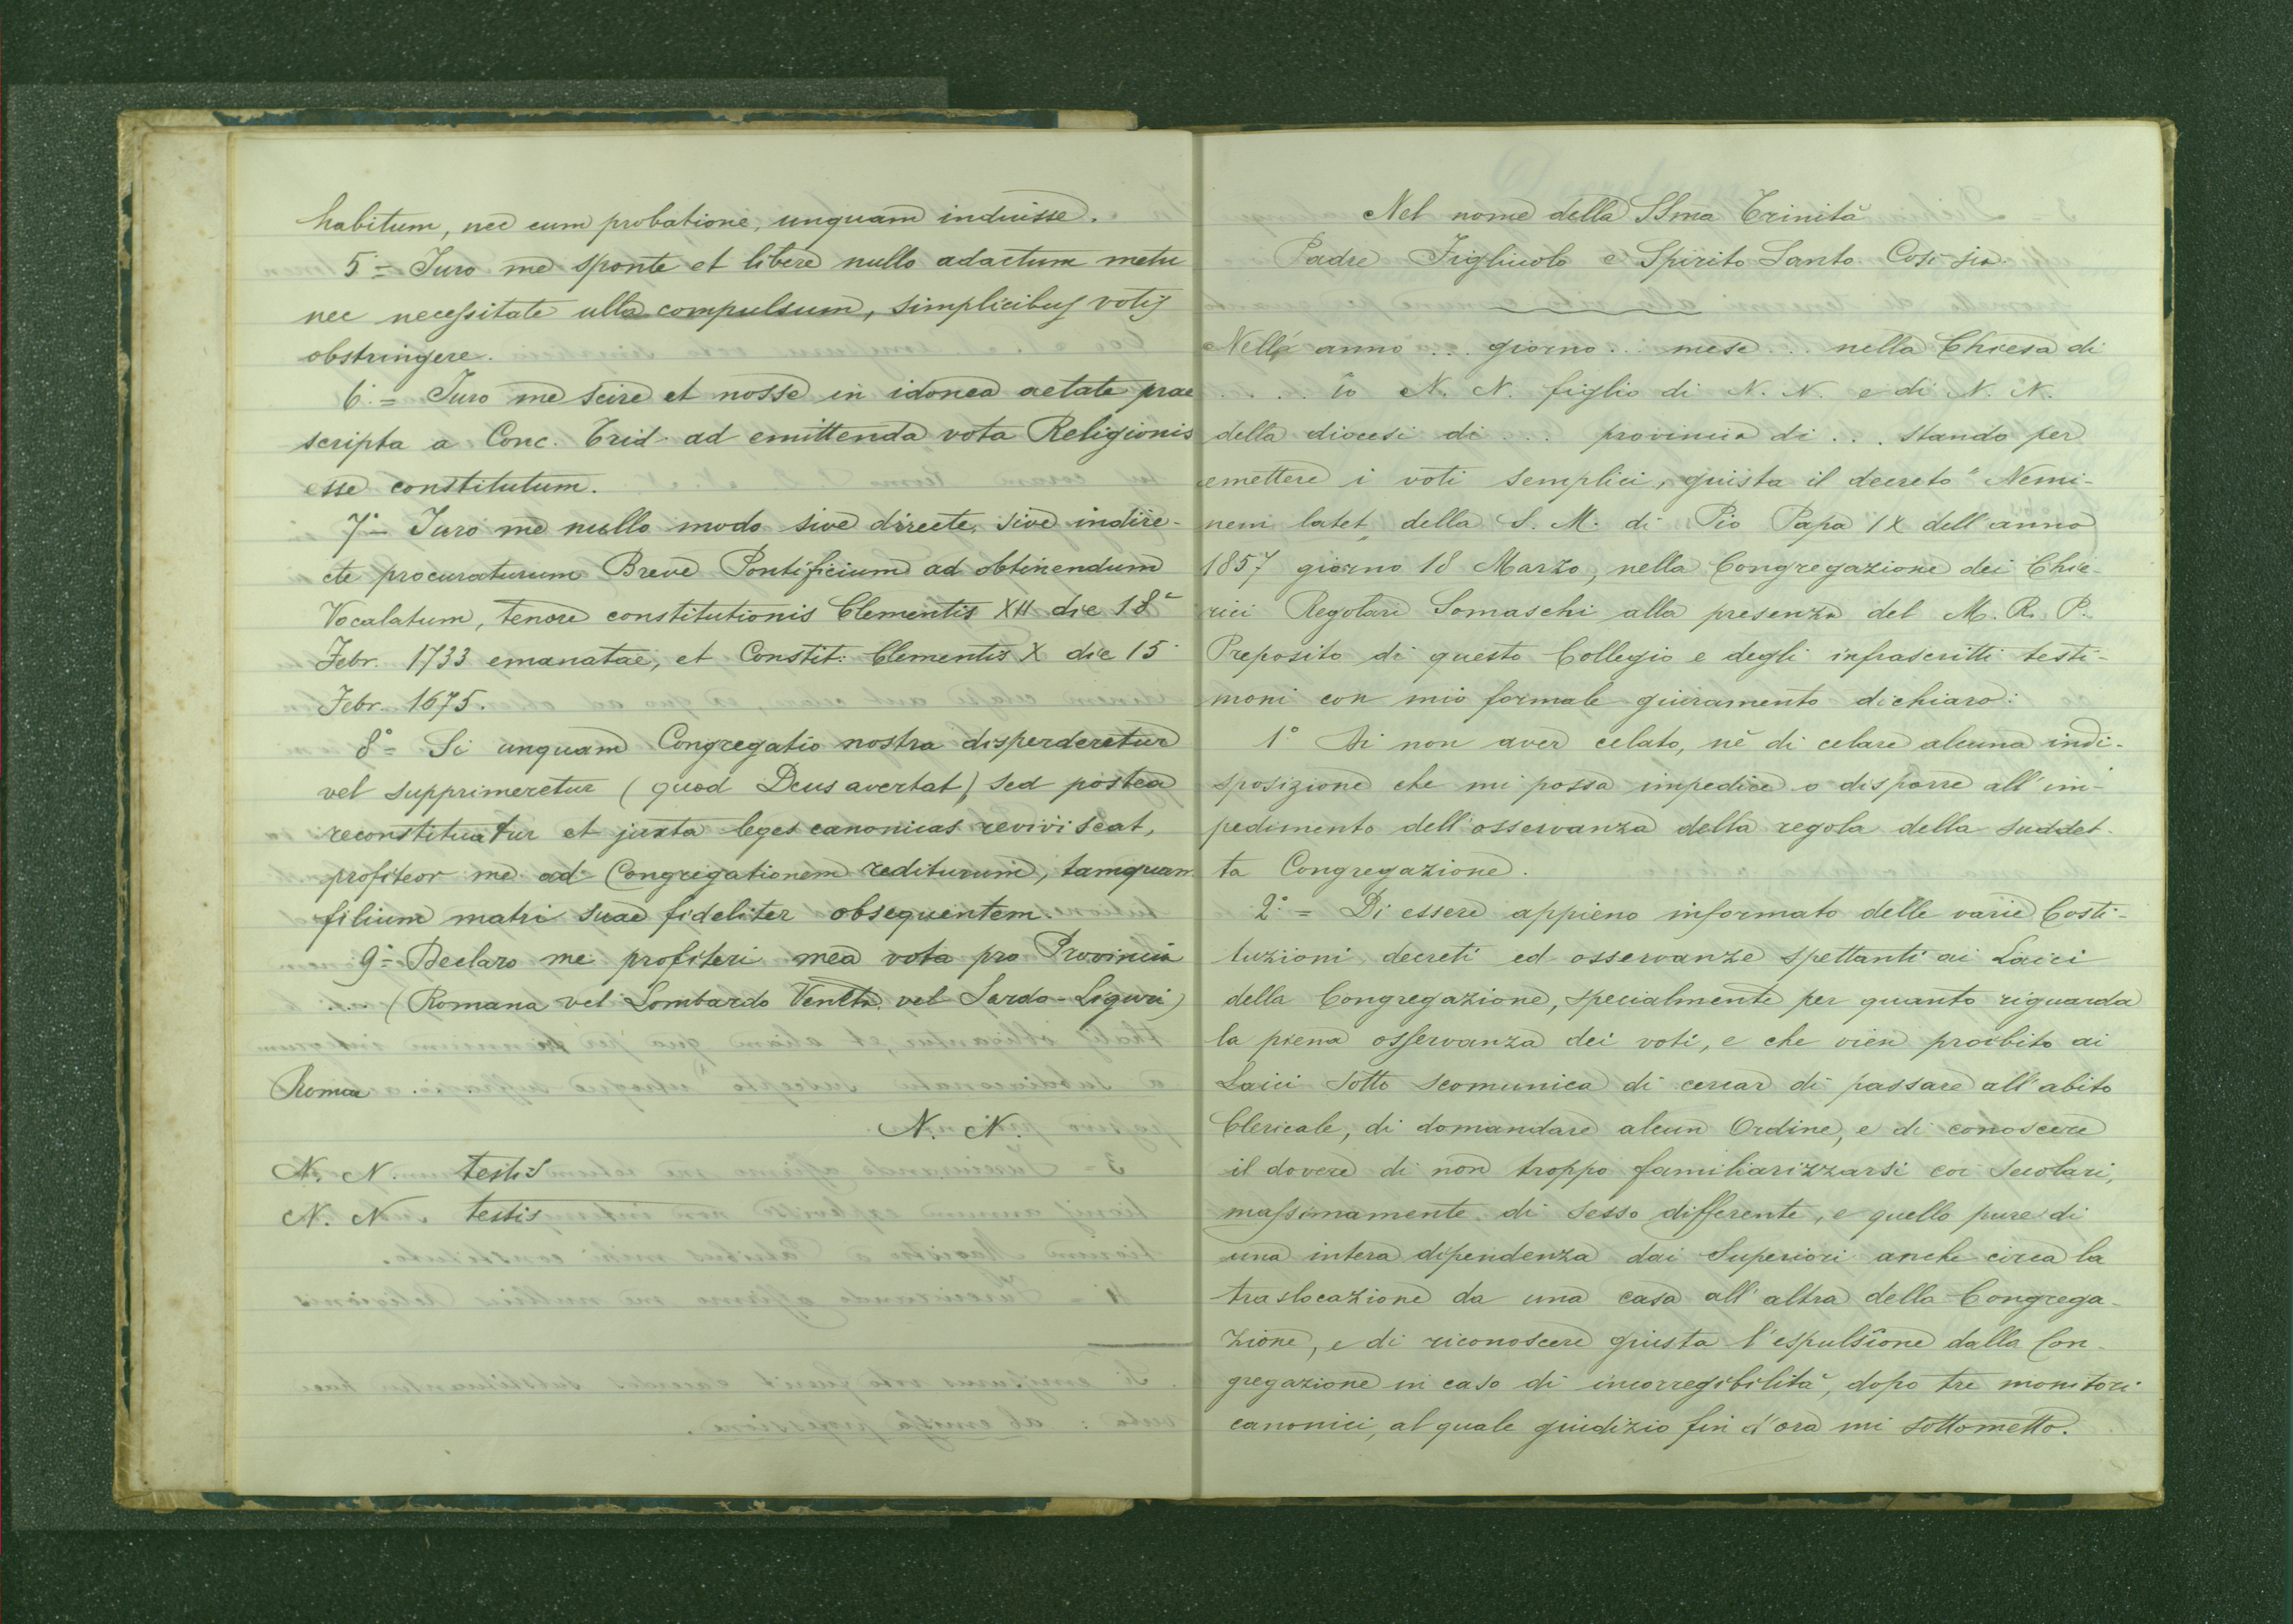 habitum, nec eum probatione, unquam induisse.
5° = Juro me sponte et libere nullo adactum metu
nec necessitate ulla compulsum, simplicibus votis
obstringere.
6.° = Juro me scire et nosse in idonea aetate prae
scripta a Conc. Trid. ad emittenda vota Religionis
esse constitutum.
7° = Juro me nullo modo sive directe, sive indire-
cte procuraturum Breve Pontificium ad obtinendum
Vocalatum, tenore constitutionis Clementis XII die 18ª
Febr. 1733 emanatae, et Constit: Clementis X die 15
Febr. 1675.
8° = Si unquam Congregatio nostra disperderetur
vel supprimeretur (quod Deus avertat) sed postea
reconstituatur et juxta leges canonicas reviviscat,
profiteor me ad Congregationem rediturum, tamquam
filium matri suae fideliter obsequentem.
9° = Declaro me profiteri mea vota pro Provincia
(Romana vel Lombardo Veneta vel Sardo-Liguri)
Romae
N. N.
N. N. testis
N. N. testis
Nel nome della SSma Trinità
Padre Figliuolo e Spirito Santo Così sia.
Nell'anno ... giorno ... mese ... nella Chiesa di
.... io N. N. figlio di N. N. e di N. N.
della diocesi di ... provincia di ... stando per
emettere i voti semplici, giusta il decreto "Nemi-
nem latet" della S. M. di Pio Papa IX dell'anno
1857 giorno 18 Marzo, nella Congregazione dei Chie-
rici Regolari Somaschi alla presenza del M. R. P.
Preposito di questo Collegio e degli infrascritti testi-
moni con mio formale giuramento dichiaro:
1° Di non aver celato, nè di celare alcuna indi-
sposizione che mi possa impedire o disporre all'im-
pedimento dell'osservanza della regola della suddet-
ta Congregazione.
2° = Di essere appieno informato delle varie Costi-
tuzioni decreti ed osservanze spettanti ai Laici
della Congregazione, specialmente per quanto riguarda
la piena osservanza dei voti, e che vien proibito ai
Laici sotto scomunica di cercar di passare all'abito
Clericale, di domandare alcun Ordine, e di conoscere
il dovere di non troppo familiarizzarsi coi Secolari,
massimamente di sesso differente, e quello pure di
una intera dipendenza dai Superiori anche circa la
traslocazione da una casa all'altra della Congrega-
zione, e di riconoscere giusta l'espulsione dalla Con-
gregazione in caso di incorregibilità, dopo tre monitori
canonici, al quale giudizio fin d'ora mi sottometto.